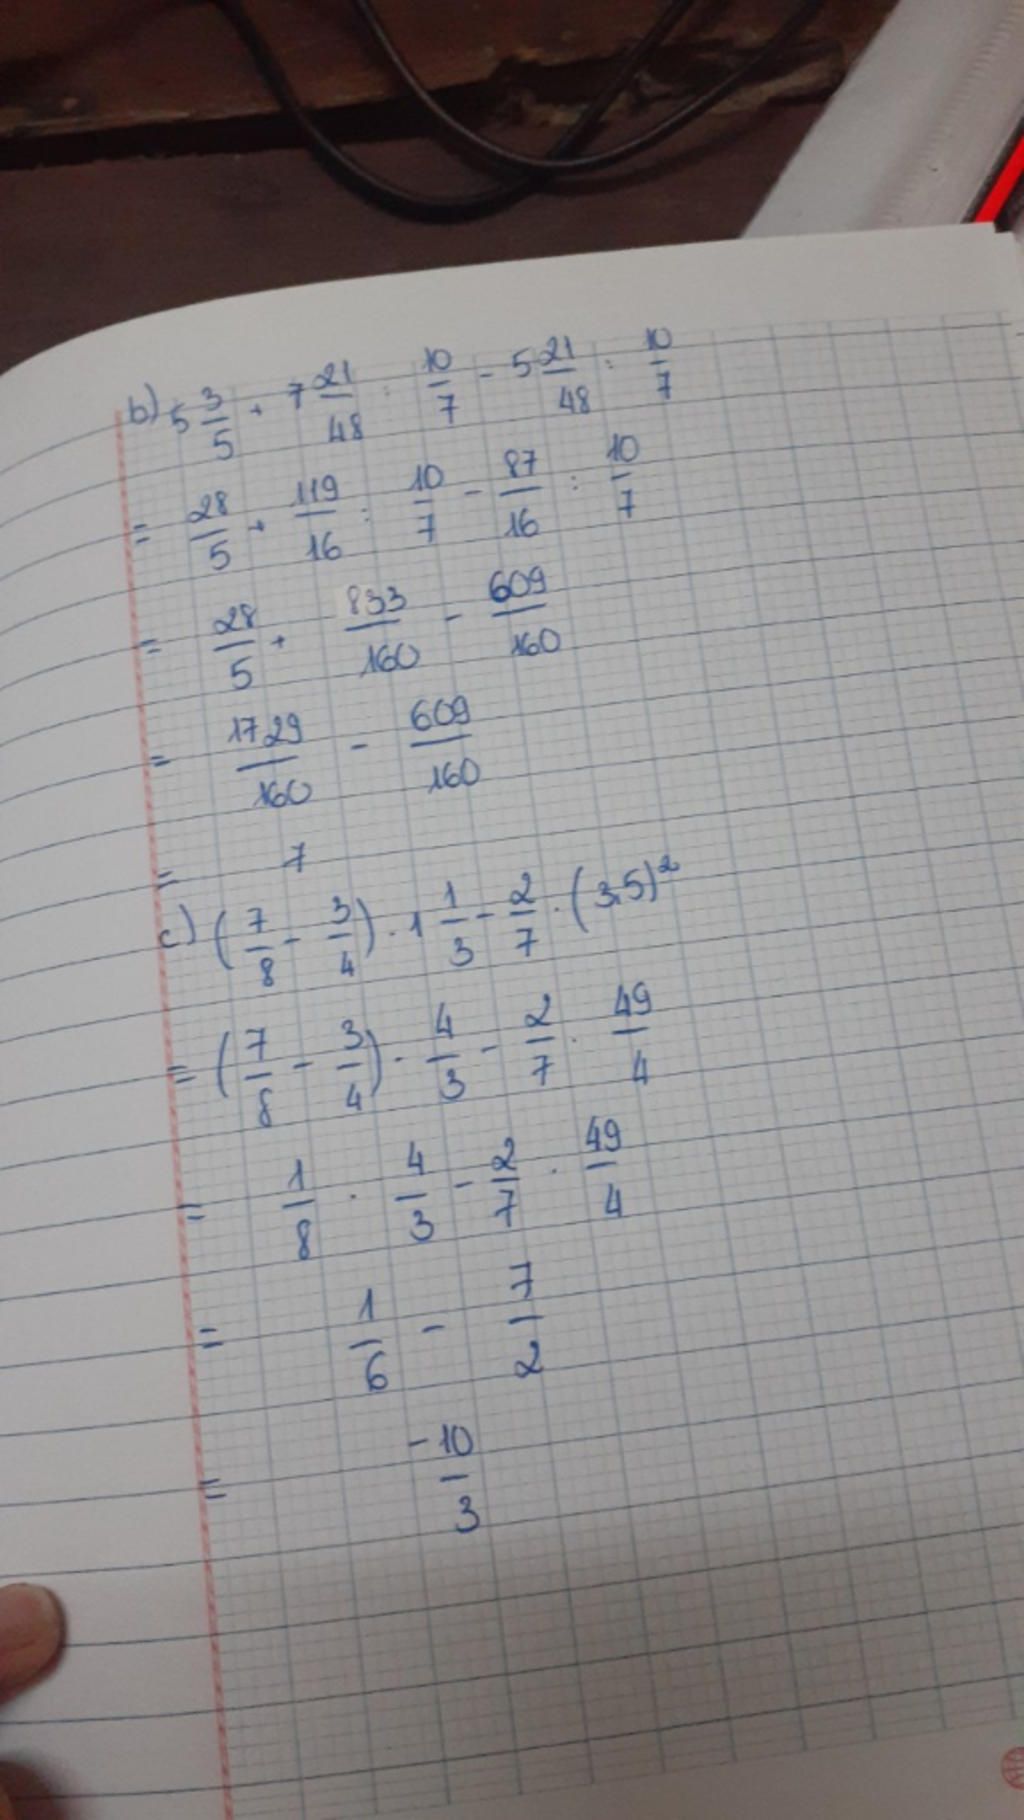 b) 5 3/5 + 7 21/48 : 10/7 - 5 21/48 : 10/7
= 28/5 + 119/16 : 10/7 - 87/16 : 10/7
= 28/5 + 833/160 - 609/160
= 1729/160 - 609/160
= 7
c) (7/8 - 3/4) . 1 1/3 - 2/7 . (3,5)²
= (7/8 - 3/4) . 4/3 - 2/7 . 49/4
= 1/8 . 4/3 - 2/7 . 49/4
= 1/6 - 7/2
= -10/3